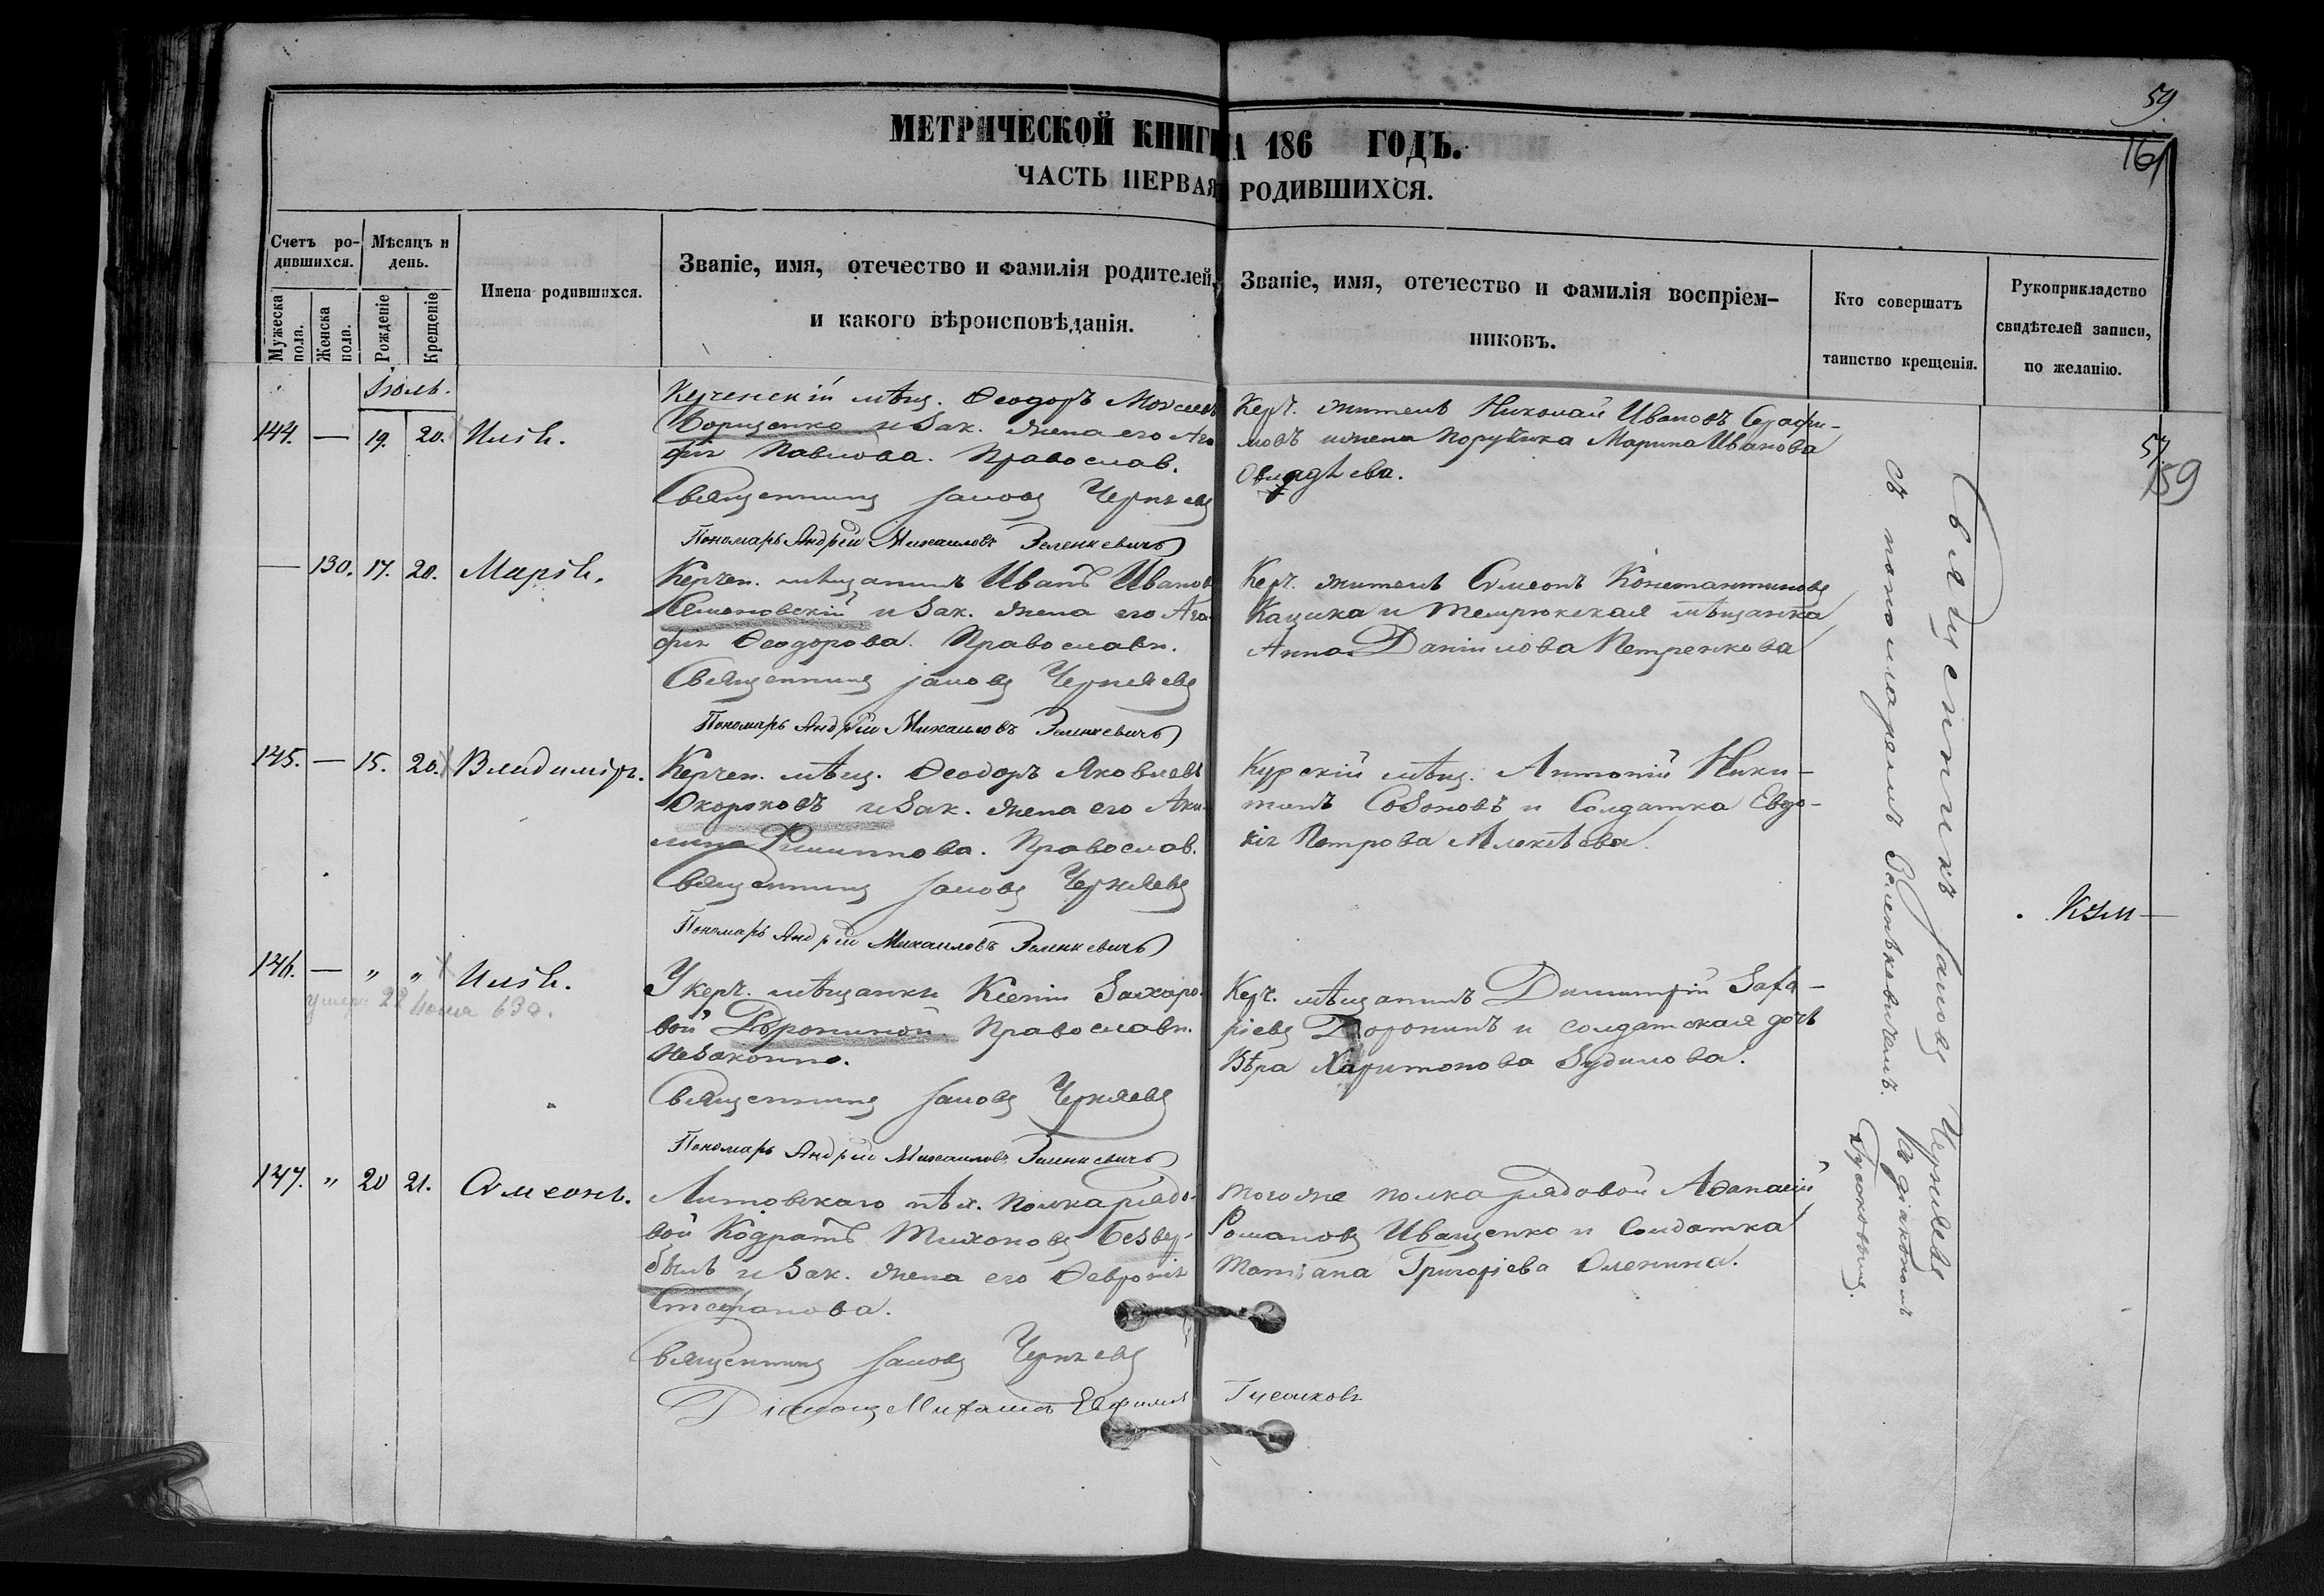 59.
161
МЕТРИЧЕСКОЙ КНИГИ НА 186 ГОДЪ.
ЧАСТЬ ПЕРВАЯ РОДИВШИХСЯ.
Счетъ ро-
дившихся.
Мужеска пола.
Женска пола.
Мѣсяцъ и
день.
Рожденіе
Крещеніе
Имена родившихся.
Званіе, имя, отечество и фамилія родителей,
и какого вѣроисповѣданія.
Званіе, имя, отечество и фамилія воспріем-
никовъ.
Кто совершатъ
таинство крещенія.
Рукоприкладство
свидѣтелей записи,
по желанію.
Іюль.
144. — 19. 20. Илія.
Керченскій мѣщ. Ѳеодоръ Моисеевъ
Борщенко и зак. жена его Ага-
фія Павлова. Православ.
Священникъ Іаковъ Черняевъ
Пономарь Андрей Михаиловъ Зеленкевичъ
Керч. житель Николай Ивановъ Серафи-
мовъ и жена поручика Марина Иванова
57.
159
— 130. 17. 20. Марія.
Керчен. мѣщанинъ Иванъ Ивановъ
Семеновскій и зак. жена его Ага-
фія Ѳеодорова. Православн.
Священникъ Іаковъ Черняевъ
Пономарь Андрей Михаиловъ Зеленкевичъ
Керч. житель Сѵмеонъ Константиновъ
Кацика и Темрюкская мѣщанка
Анна Даніилова Петренкова
145. — 15. 20. Владиміръ.
Керчен. мѣщ. Ѳеодоръ Яковлевъ
Скороковъ и зак. жена его Аки-
лина Филиппова. Православ.
Священникъ Іаковъ Черняевъ
Пономарь Андрей Михаиловъ Зеленкевичъ
Курскій мѣщ. Антоній Ники-
тинъ Созоновъ и Солдатка Евдо-
кія Петрова Алексѣева.
146. — „ „ Илія.
умеръ 22 Іюля 63 г.
У керч. мѣщанки Ксеніи Захаро-
вой Дорониной. Православн.
Незаконно.
Священникъ Іаковъ Черняевъ
Пономарь Андрей Михаиловъ Зеленкевичъ
Керч. мѣщанинъ Димитрій Заха-
ріевъ Доронинъ и солдатская дочь
Вѣра Харитонова Зудилова.
147. „ 20 21. Сѵмеонъ.
Литовскаго пѣх. полка рядо-
вой Кодратъ Тихоновъ Безвер-
былъ и зак. жена его Ѳевронія
Стефанова.
Священникъ Іаковъ Черняевъ
Діаконъ Михаилъ Евфимовъ Гусаковъ
того же полка рядовой Аѳанасій
Романовъ Иващенко и Солдатка
Татіана Григоріева Оленина.
Священникъ Іаковъ Черняевъ
съ пономаремъ Зеленкевичемъ. И діакономъ
Гусаковымъ.